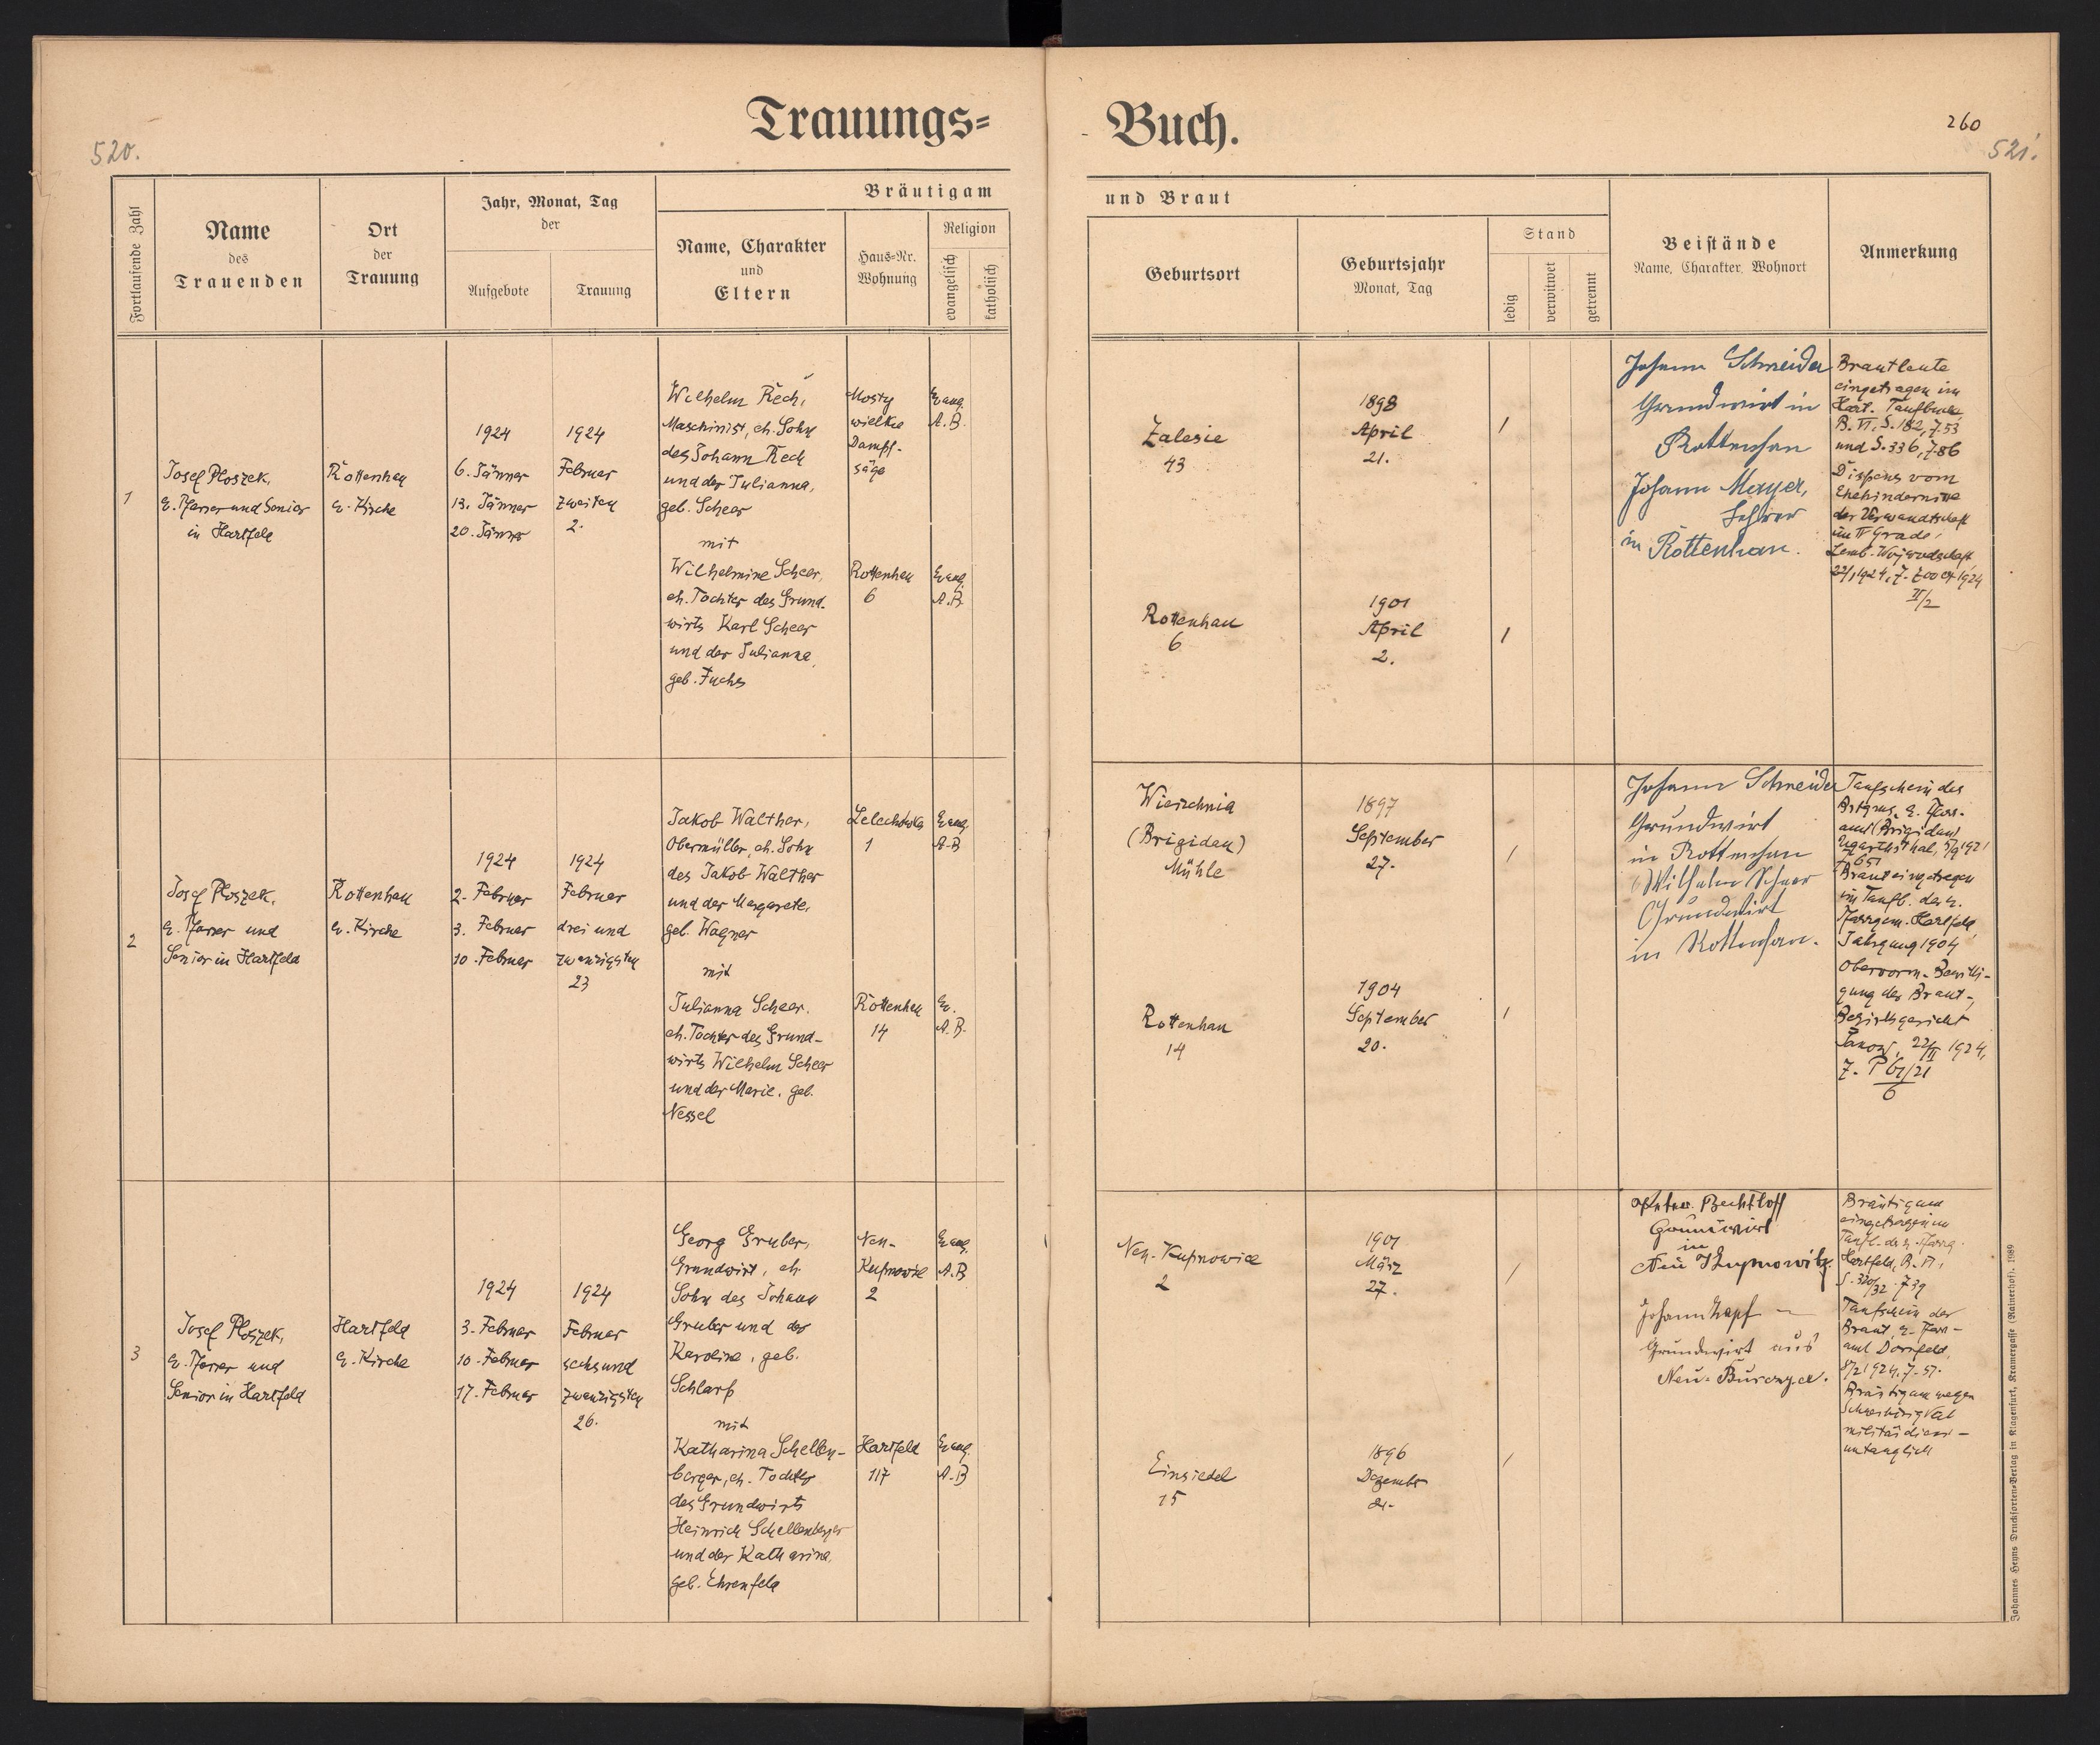 Trauungs=
Buch.
520.
260
521.
Fortlaufende Zahl
Name
des
Trauenden
Ort
der
Trauung
Jahr, Monat, Tag
der
Aufgebote
Trauung
Bräutigam
Name, Charakter
und
Eltern
Haus=Nr.
Wohnung
Religion
evangelisch
katholisch
und Braut
Geburtsort
Geburtsjahr
Monat, Tag
Stand
ledig
verwitwet
getrennt
Beistände
Name, Charakter, Wohnort
Anmerkung
1
Josef Ploszek,
E. Pfarrer und Senior
in Hartfeld
Rottenhan
E. Kirche
1924
6. Jänner
13. Jänner
20. Jänner
1924
Februar
zweiten
2.
Wilhelm Rech,
Maschinist, eh. Sohn
des Johann Rech
und der Julianna,
geb. Scheer
mit
Wilhelmine Scheer,
eh. Tochter des Grund-
wirts Karl Scheer
und der Julianna,
geb. Fuchs
Mosty
wielkie
Dampf-
säge
Evang.
A.B.
Rottenhan
6
Evang.
A.B.
Zalesie
43
1898
April
21.
/
Rottenhan
6
1901
April
2.
/
Johann Schneider
Grundwirt in
Rottenhan
Johann Mayer,
Lehrer
in Rottenhan.
Brautleute
eingetragen im
Hart. Taufbuche
B. VI, S. 182, Z. 53
und S. 336, Z. 86
Dispens vom
Ehehindernisse
der Verwandtschaft
im IV Grade,
Lemb. Wojwodschaft
II/2
2
Josef Ploszek,
E. Pfarrer und
Senior in Hartfeld
Rottenhan
E. Kirche
1924
2. Februar
3. Februar
10. Februar
1924
Februar
drei und
zwanzigsten
23
Jakob Walther,
Obermüller, eh. Sohn
des Jakob Walther
und der Margarete,
geb. Wagner
mit
Julianna Scheer,
eh. Tochter des Grund-
wirts Wilhelm Scheer
und der Marie, geb.
Nessel
Lelechówka
1
Evang.
A.B
Rottenhan
14
Ev.
A.B.
Wierzchnia
(Brigidau)
Mühle
1897
September
27.
/
Rottenhan
14
1904
September
20.
/
Johann Schneider
Grundwirt
in Rottenhan
Wilhelm Scheer
Grundwirt
in Rottenhan.
Taufschein des
Brtgms, E. Pfarr-
amt (Brigidau)
Ugartsthal, 5/9 1921
Z. 651
Braut eingetragen
im Taufb. der E.
Pfarrgem. Hartfeld,
Jahrgang 1904
Obervorm. Bewilli-
gung der Braut,
Bezirksgericht
Janow, 22/II 1924,
Z. P 61/21
6
3
Josef Ploszek,
E. Pfarrer und
Senior in Hartfeld
Hartfeld
E. Kirche
1924
3. Februar
10. Februar
17. Februar
1924
Februar
sechsund
zwanzigsten
26.
Georg Gruber,
Grundwirt, eh.
Sohn des Johann
Gruber und der
Karoline, geb.
Schlarp
mit
Katharina Schellen-
berger, eh. Tochter
des Grundwirts
Heinrich Schellenberger
und der Katharina,
geb. Ehrenfeld
Neu-
Kupnowice
2
Evang.
A.B
Hartfeld
117
Evang.
A.B
Neu-Kupnowice
2
1901
März
27.
/
Einsiedel
15
1896
Dezember
/
Peter Bechtloff
Grundwirt
in
Neu Kupnowitz.
Johann Kopf
Grundwirt aus
Neu-Burczyce.
Bräutigam
eingetragen im
Taufb. der E. Pfarrg.
Hartfeld, B. VI,
Taufschein der
Braut, E. Pfarr-
amt Dornfeld,
8/2 1924, Z. 57.
Bräutigam wegen
Schwerhörigkeit
militärdienst-
untauglich
Johannes Heyns Drucksorten=Verlag in Klagenfurt, Kramergasse (Rainerhof). 1989